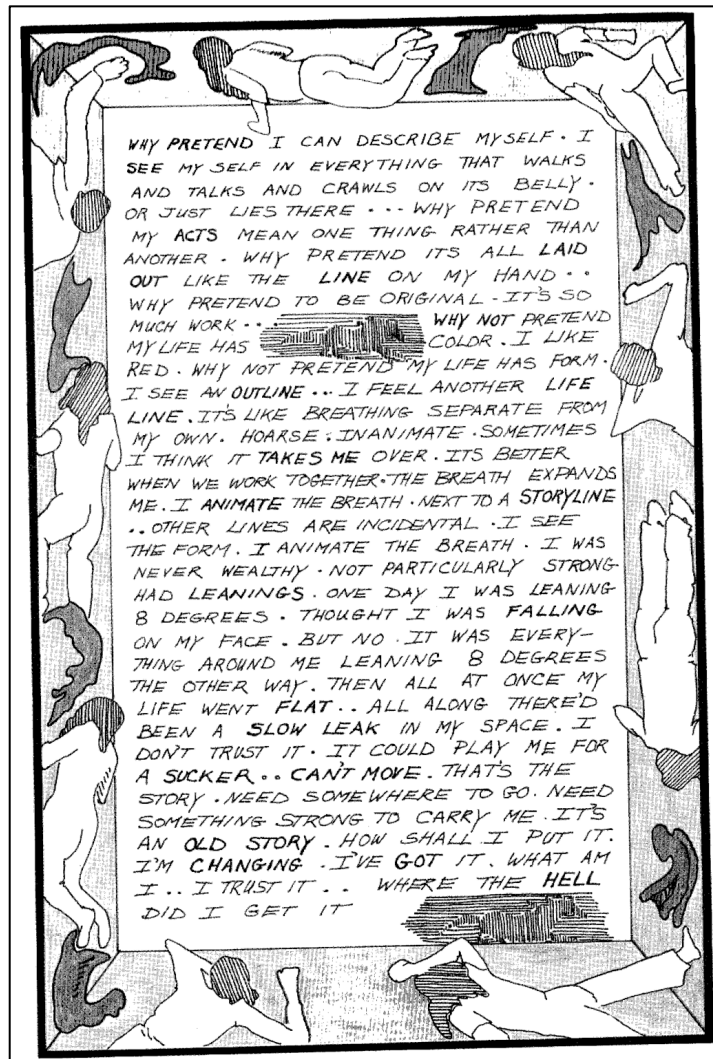 WHY PRETEND I CAN DESCRIBE MYSELF. I
SEE MY SELF IN EVERYTHING THAT WALKS
AND TALKS AND CRAWLS ON ITS BELLY.
OR JUST LIES THERE ... WHY PRETEND
MY ACTS MEAN ONE THING RATHER THAN
ANOTHER. WHY PRETEND ITS ALL LAID
OUT LIKE THE LINE ON MY HAND..
WHY PRETEND TO BE ORIGINAL. IT'S SO
MUCH WORK... WHY NOT PRETEND
MY LIFE HAS COLOR. I LIKE
RED. WHY NOT PRETEND MY LIFE HAS FORM.
I SEE AN OUTLINE... I FEEL ANOTHER LIFE
LINE. IT'S LIKE BREATHING SEPARATE FROM
MY OWN. HOARSE. INANIMATE. SOMETIMES
I THINK IT TAKES ME OVER. ITS BETTER
WHEN WE WORK TOGETHER. THE BREATH EXPANDS
ME. I ANIMATE THE BREATH. NEXT TO A STORYLINE
.. OTHER LINES ARE INCIDENTAL. I SEE
THE FORM. I ANIMATE THE BREATH. I WAS
NEVER WEALTHY. NOT PARTICULARLY STRONG
HAD LEANINGS. ONE DAY I WAS LEANING
8 DEGREES. THOUGHT I WAS FALLING
ON MY FACE. BUT NO. IT WAS EVERY-
THING AROUND ME LEANING 8 DEGREES
THE OTHER WAY. THEN ALL AT ONCE MY
LIFE WENT FLAT.. ALL ALONG THERE'D
BEEN A SLOW LEAK IN MY SPACE. I
DON'T TRUST IT. IT COULD PLAY ME FOR
A SUCKER.. CAN'T MOVE. THAT'S THE
STORY. NEED SOMEWHERE TO GO. NEED
SOMETHING STRONG TO CARRY ME. IT'S
AN OLD STORY. HOW SHALL I PUT IT.
I'M CHANGING. I'VE GOT IT. WHAT AM
I.. I TRUST IT.. WHERE THE HELL
DID I GET IT